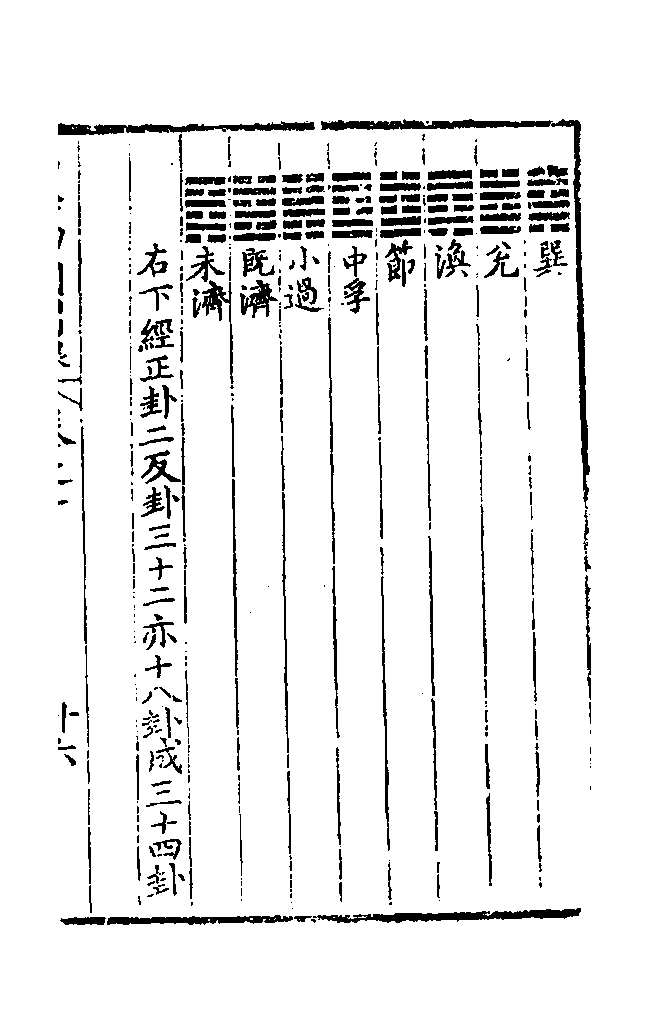 巽
兌
渙
節
中孚
小過
既濟
未濟
右下經正卦二反卦三十二亦十八卦成三十四卦
十六